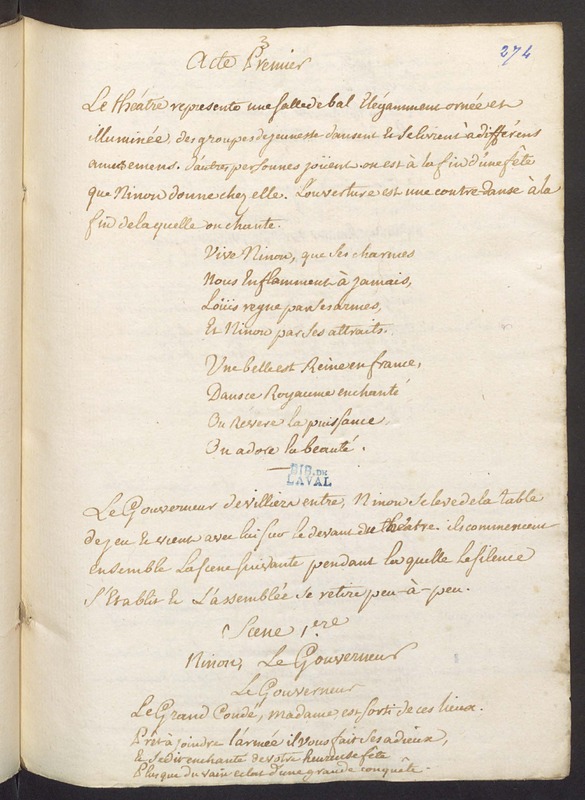 3
274
Acte Premier
Le théâtre represente une salle de bal Elégamment ornée et
illuminée, des groupes de jeunesse dansent et se livrent à différens
amusemens. d'autres personnes joüent on est à la fin d'une fête
que Ninon donne chez elle. L'ouverture est une contre danse à la
fin de laquelle on chante.
Vive Ninon, que ses charmes
Nous Enflamment à jamais,
Loüis regne par ses armes,
Et Ninon par ses attraits.
Une belle est Reine en france,
Dans ce Royaume enchanté
On Revere la puissance,
On adore la beauté.
BIB. DE
LAVAL
Le Gouverneur de villiers entre, Ninon se leve de la table
de jeu et vient avec lui sur le devant du théâtre. ils commencent
ensemble La scene suivante pendant laquelle le silence
s'Etablit et L'assemblée se retire peu-à-peu.
Scene 1.ere
Ninon, Le Gouverneur
Le Gouverneur
Le Grand Condé, madame est sorti de ces lieux.
Prêt à joindre l'armée il vous fait ses adieux,
Et se dit enchanté de votre heureuse fête
Plus que du vain eclat d'une grande conquête.